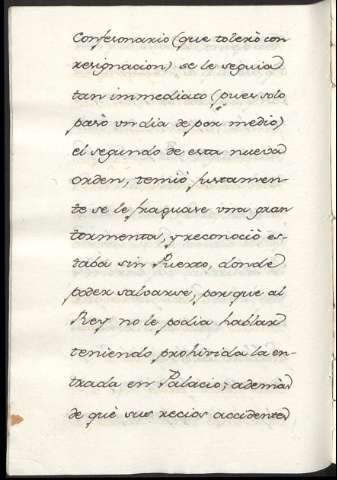 Confesonario (que tolerò con
resignacion) se le seguia
tan immediato (pues solo
pasò vn dia de por medio)
el segundo de esta nueva
orden, temiò justamen-
te se le fraguase vna gran
tormenta, y reconociò es-
taba sin Puerto, donde
poder salvarse, por que al
Rey no le podia hablar
teniendo prohivida la en-
trada en Palacio; ademàs
de què sus recios accidentes